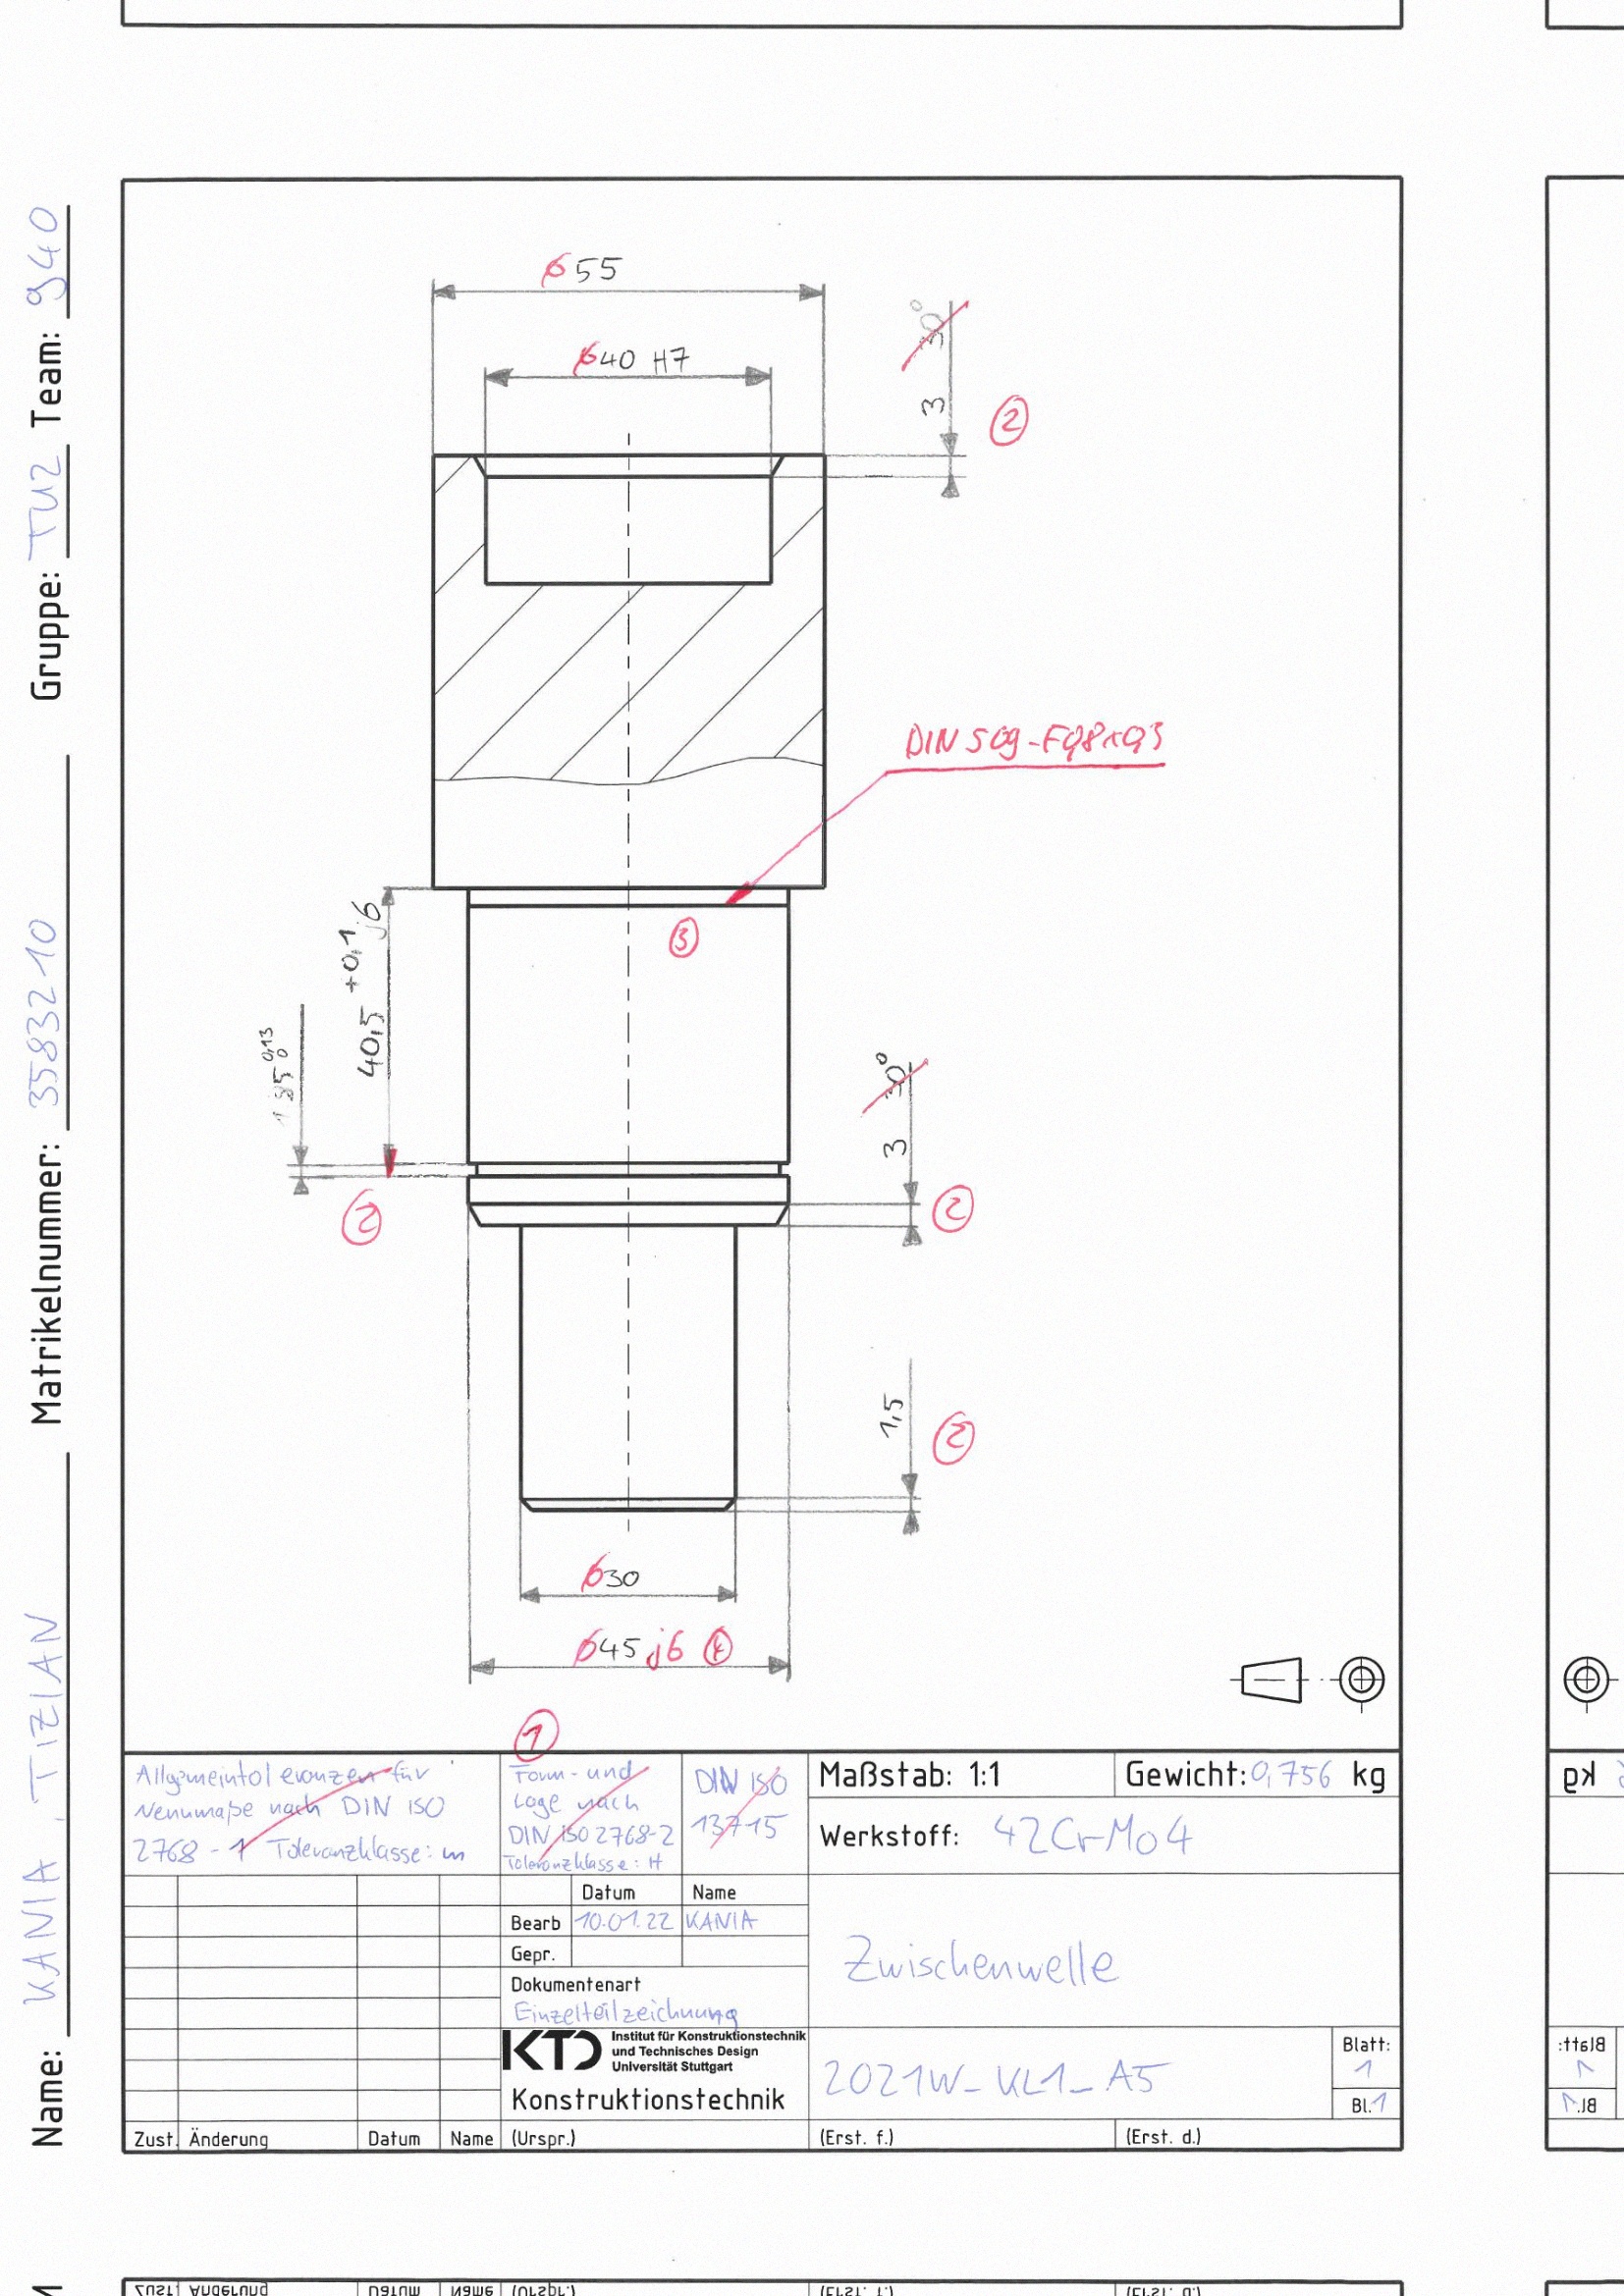 Name: KANIA, TIZIAN Matrikelnummer: 3583210 Gruppe: TU2 Team: 940
⌀55
⌀40 H7
30°
3
②
DIN 509-F0,8x0,3
③
40,5 +0,1 j6
1,85 0,13 0
②
30°
3
②
1,5
②
⌀30
⌀45 j6 ④
①
Allgemeintoleranzen für
Nennmaße nach DIN ISO
2768 - 1 Toleranzklasse: m
Form- und
Lage nach
DIN ISO 2768-2
Toleranzklasse: H
DIN ISO
13715
Maßstab: 1:1
Gewicht: 0,756 kg
Werkstoff: 42CrMo4
Datum Name
Bearb 10.01.22 KANIA
Gepr.
Dokumentenart
Einzelteilzeichnung
Zwischenwelle
KTD Institut für Konstruktionstechnik
und Technisches Design
Universität Stuttgart
Konstruktionstechnik
2021W_KL1_A5
Blatt:
1
Bl. 1
Zust. Änderung Datum Name (Urspr.) (Erst. f.) (Erst. d.)
kg
Blatt:
1
Bl. 1
Zust. Änderung Datum Name (Urspr.) (Erst. f.) (Erst. d.)